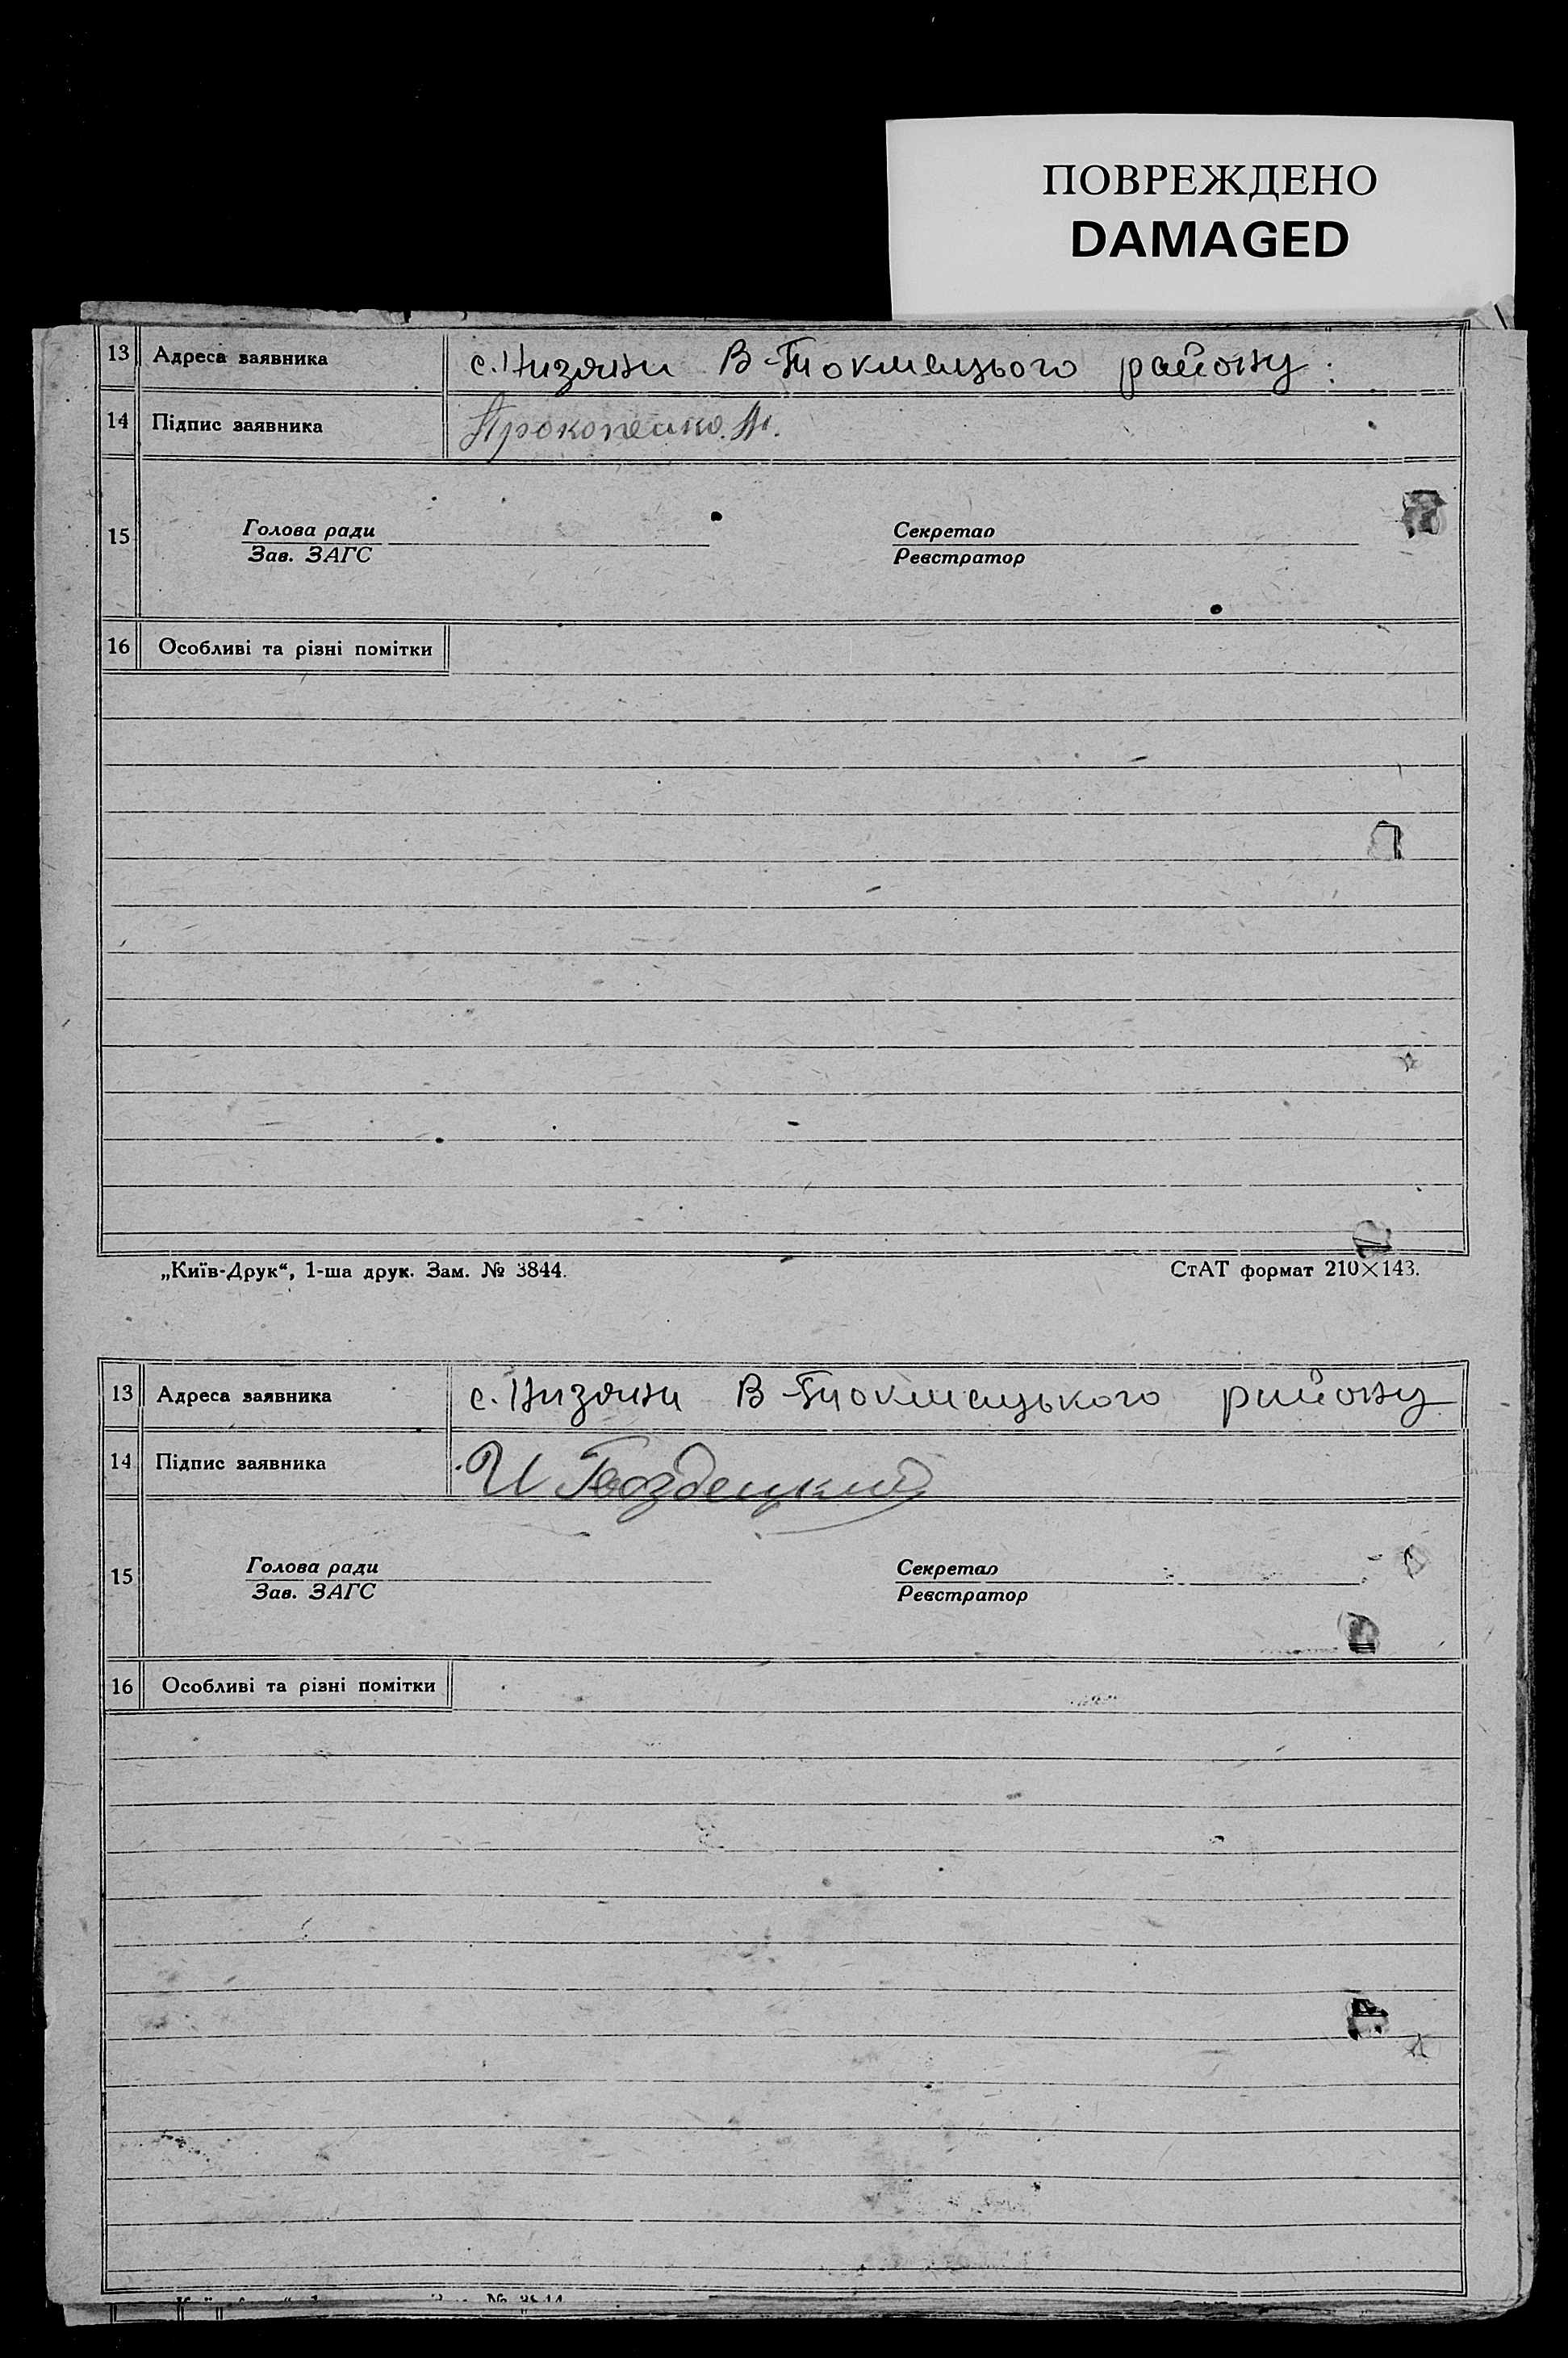 ПОВРЕЖДЕНО
DAMAGED
13 Адреса заявника с. Низяни В-Токмацього району
14 Підпис заявника Прокопенко. М.
15 Голова ради Секретар
Зав. ЗАГС Реєстратор
16 Особливі та різні помітки
„Київ-Друк“, 1-ша друк. Зам. № 3844. СтАТ формат 210×143.
13 Адреса заявника с. Низяни В-Токмацького району
14 Підпис заявника И Гвоздецкий
15 Голова ради Секретар
Зав. ЗАГС Реєстратор
16 Особливі та різні помітки